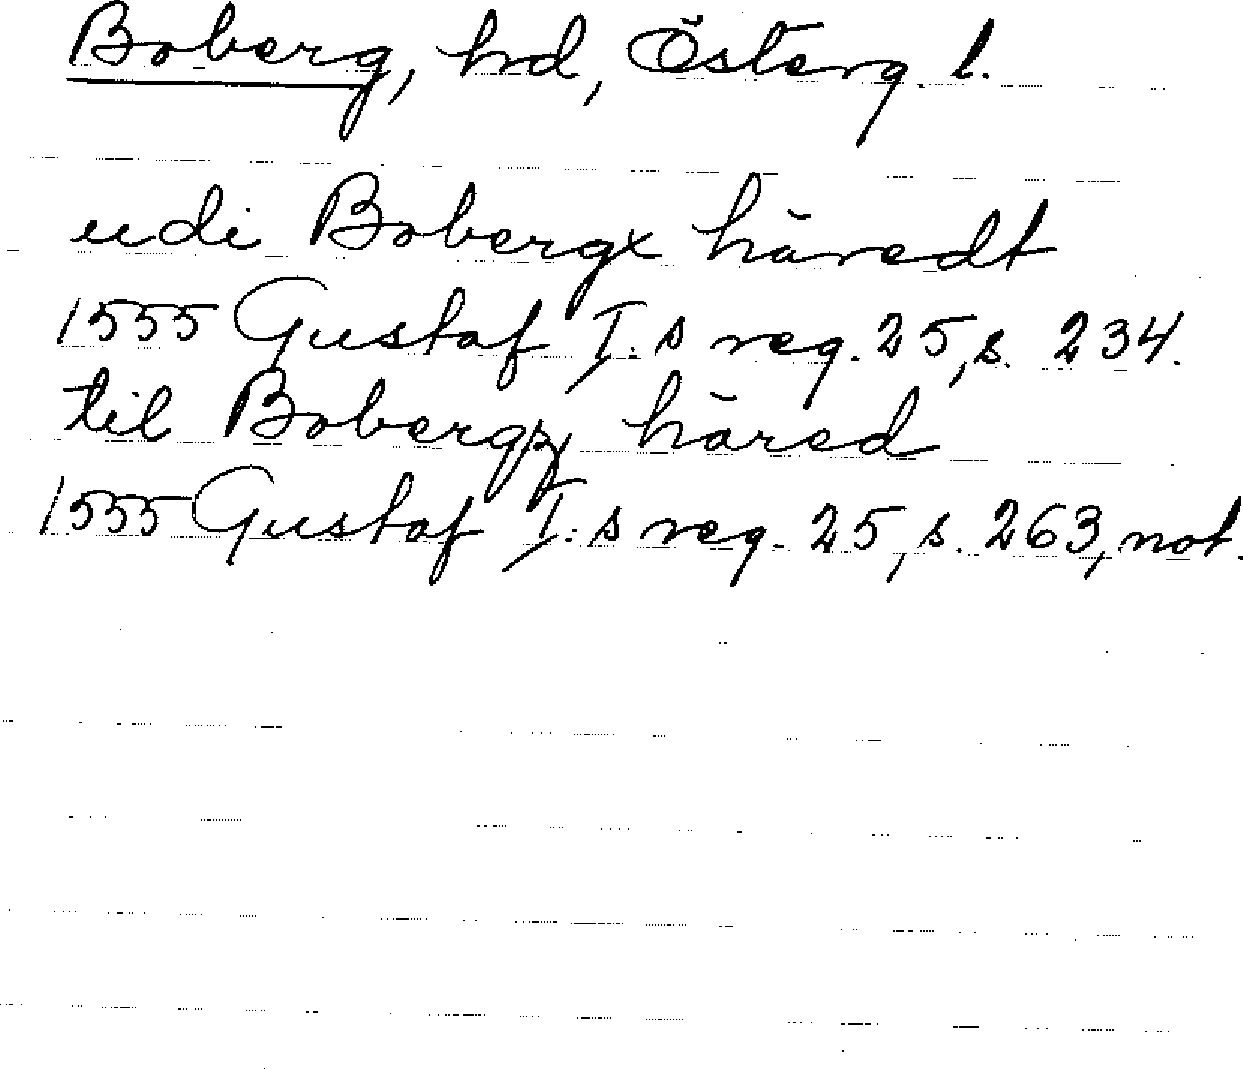 Boberg, hd, Österg. l.
udi Bobergx häredt
1555 Gustaf I:s reg. 25, s. 234.
til Bobergz häred
1555 Gustaf I:s reg. 25, s. 263, not.